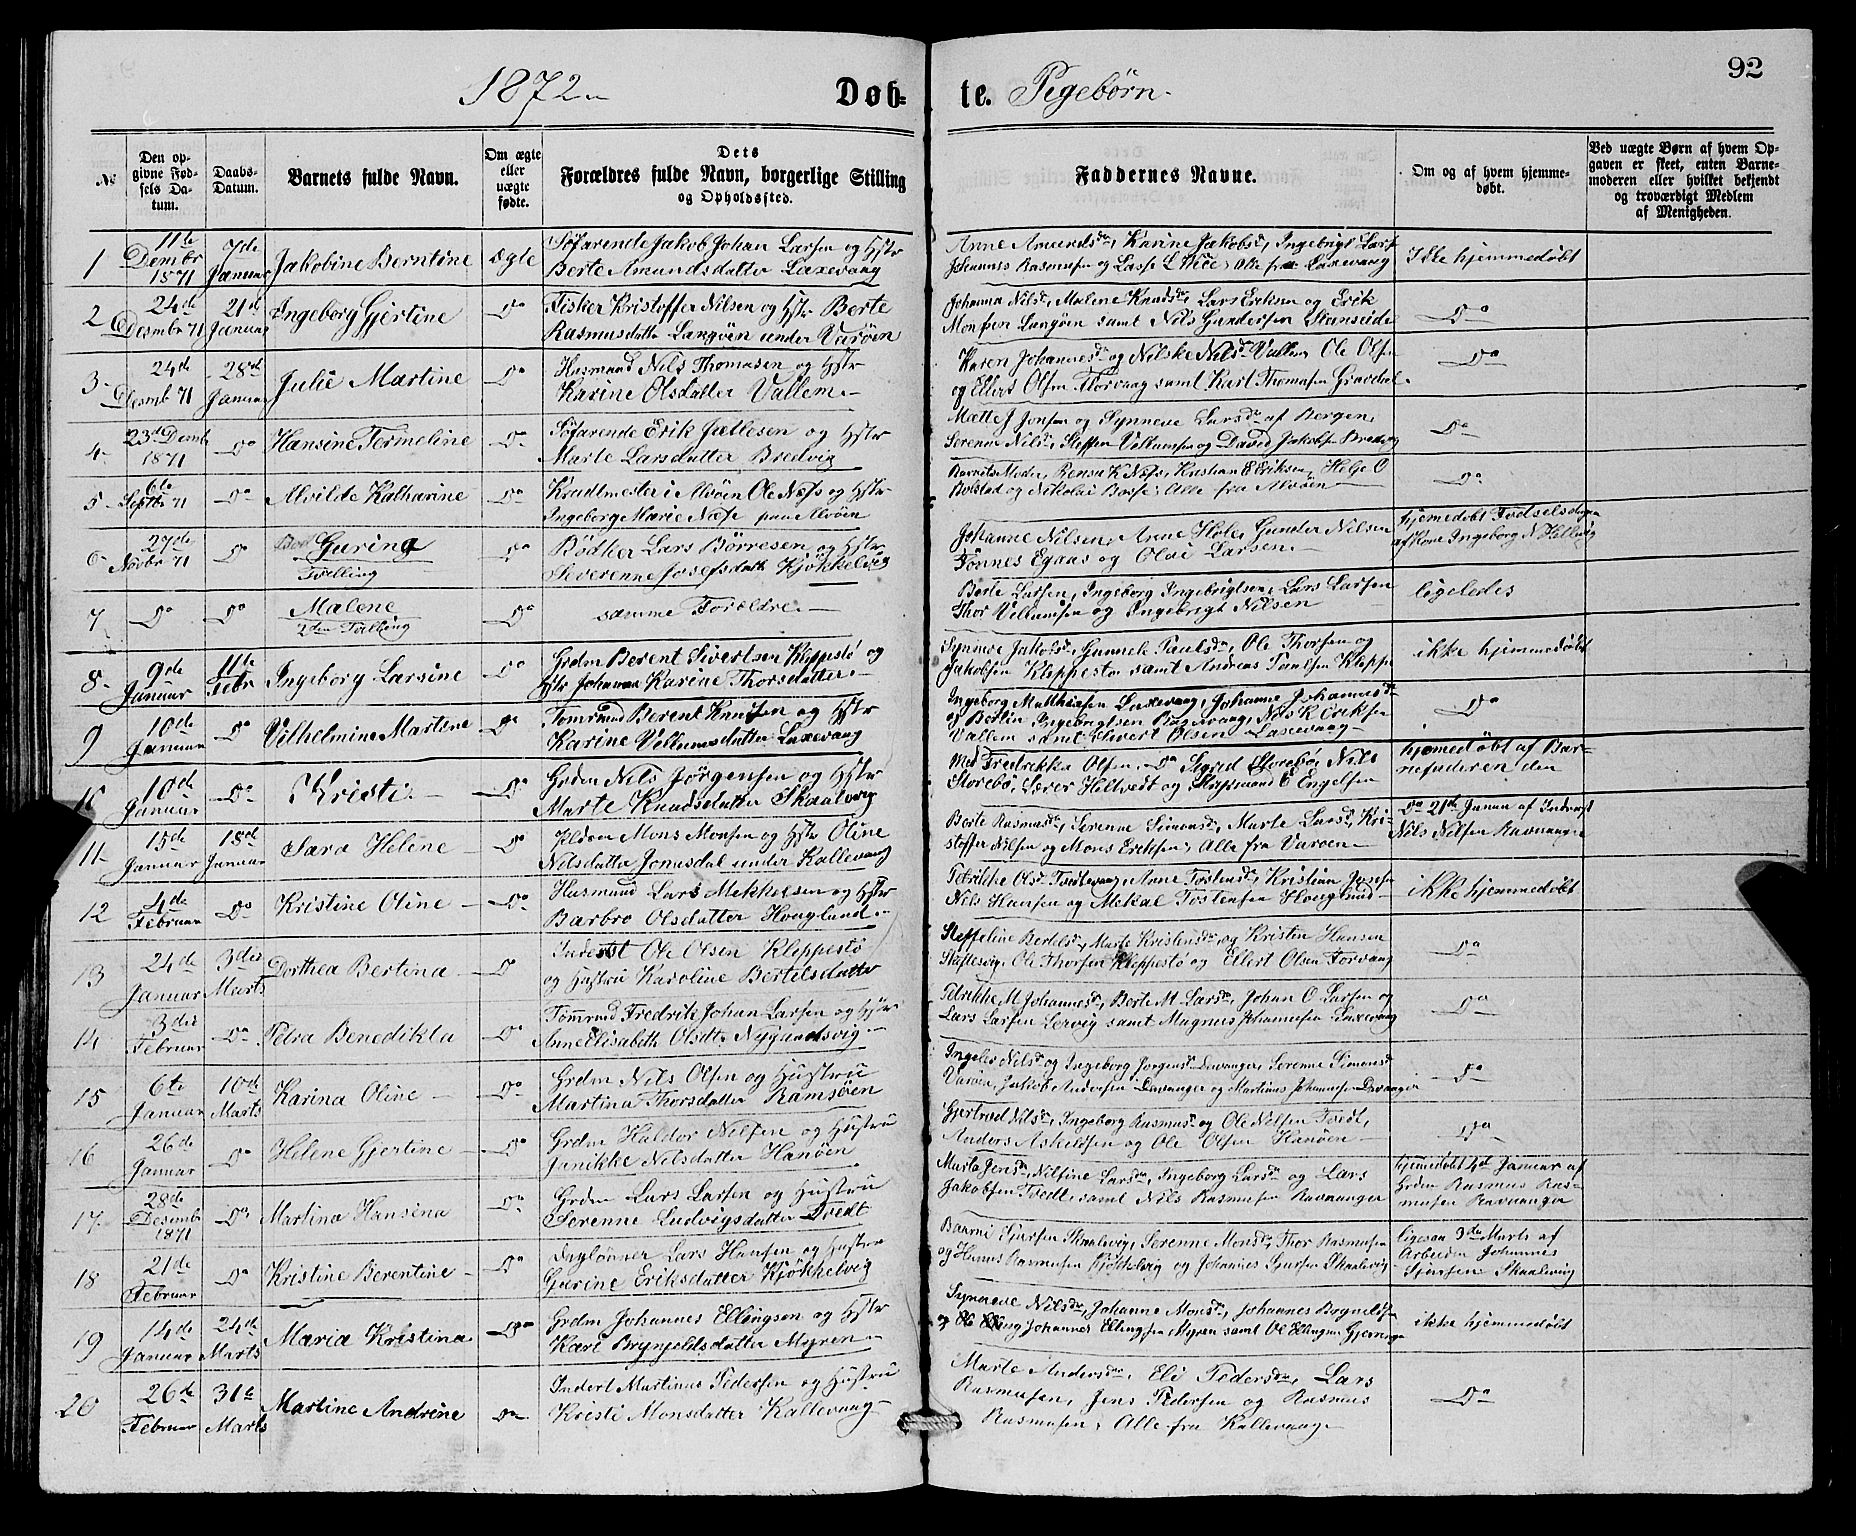 92
1872
Døb-
te.
Pigebørn.
№
Den op-
givne Fød-
sels Da-
tum.
Daabs-
Datum.
Barnets fulde Navn.
Om ægte
eller
uægte
fødte.
Dets
Forældres fulde Navn, borgerlige Stilling
og Opholdssted.
Faddernes Navne.
Om og af hvem hjemme-
døbt.
Ved uægte Børn af hvem Op-
gaven er skeet, enten Barne-
moderen eller hvilket bekjendt
og troværdigt Medlem
af Menigheden.
1
11te
Dembr
1871
7de
Januar
Jakobine Berntine
Ægte
Søfarende Jakob Johan Larsen og Hstr
Berte Amundsdatter Laxevaag
Johannes Rasmusen og Lasse Alle fra Laxevaag
Ikke hjemmedøbt
2
24de
Desmbr 71
21de
Januar
Ingeborg Gjertine
Do
Fisker Kristoffer Nilsen og Hstr Berte
Rasmusdatter Langøen under Varøen
Johanna Nilsd, Malene Knudsd, Lars Eriksen og Erik
Monsen Langøen samt Nils Gundersen
Do
3
24de
Desmb 71
28de
Januar
Julie Martine
Do
Husmand Nils Thomasen og Hstr
Karine Olsdatter Vallem
Karen Johannesd og Nilske Nilsd Vallem, Ole Olsen
og Ellert Olsen Florvaag samt Karl Thomasen Gravdal
Do
4
23de Demb
1871
Do
Hansine Termeline
Do
Søfarende Erik Jetlesen og Hstr
Marte Larsdatter Bredvig
Mette J Jonsen og Synneve Larsd af Bergen,
Serena Nilsd, Steffen Villumsen og David Jakobsen Bredvig
Do
5
6te
Septbr 71
Do
Alvilde Katharine
Do
Krudtmester i Alvøen Ole Næss og Hstr
Ingeborg Marie Næss paa Alvøen
Barnets Moder, Rensa K Næss, Kristian E Eriksen, Helge O
Bolstad og Nikolai Basse, Alle fra Alvøen
Do
6
27de
Novbr 71
Do
Guring
Tvilling
Do
Bødker Lars Børresen og Hstr
Severenne Josefsdatt Kjøkkelvig
Johanne Nilsen, Anne Hole, Gunder Nilsen
Tønnes Egaas og Olai Larsen
hjemedøbt Fødselsdagen
af Kone Ingeborg N Hellvig
7
Do
Do
Malene
2den Tvilling
Do
samme Forældre
Berte Larsen, Ingeborg Ingebrigtsen, Lars Larsen
Thor Villumsen og Ingebrigt Nilsen
ligeledes
8
9de
Januar
11te
Febr
Ingeborg Larsine
Do
Grdm Berent Sivertsen Kleppestø og
Hstr Johanna Karine Thorsdatter
Synneve Jakobsd, Gunnele Paulsd, Ole Thorsen og
Jakobsen Kleppestø samt Andreas Kleppe
ikke hjemmedøbt
9
10de
Januar
Do
Vilhelmine Martine
Do
Tømrmd Berent Knutsen og Hstr
Karine Villumsdatter Laxevaag
Ingeborg Mathiesen Laxevaag, Johanne Johannesd
og Berlin Ingebrigtsen Nils K Eriksen
Vallem samt Sivert Olsen Laxevaag
Do
10
10de
Januar
Do
Kristi
Do
Grdm Nils Jørgensen og Hstr
Marte Knudsdatter Skaalvig
Md Fredrikke Olsen, Do Sigrid Storebø, Nils
Storebø, Hellvedt og E Engelsen
hjemedøbt af Bar-
nefaderen den
11
15de
Januar
18de
Januar
Sara Helene
Do
Mons Monsen og Hstr Oline
Nilsdatter Jonasdal under Kallevaag
Berte Rasmusd, Serenne Simonsd, Marte Larsd, Kri-
stoffer Nilsen og Mons Eriksen, Alle fra Varøen
Do 21de Januar af Inderst
Nils Nilsen Ravnanger
12
4de
Februar
Do
Kristine Oline
Do
Husmand Lars Mikkelsen og Hstr
Barbro Olsdatter Houglund
Petrikke Olsd Anne Tostensd, Kristian Jonsen
Nils Hansen og Mekal Tostensen Houglund
ikke hjemmedøbt
13
24de
Januar
3die
Marts
Dorthea Bertina
Do
Inderst Ole Olsen Kleppestø
og Hustru Karoline Bertelsdatter
Steffeline Bertelsd, Marte Kristensd, og Kristen Hansen
Ole Thorsen Kleppestø og Ellert Olsen Torvaag
Do
14
3die
Februar
Do
Petra Benedikta
Do
Tømrmd Fredrik Johan Larsen og Hstr
Anne Elisabeth Olsdtr Nygaardsvig
Petrikke M Johannesd, Berte M Larsd, Johan O Larsen og
Lars Larsen Lervig samt Magnus Johannesen Laxevaag
Do
15
6te
Januar
10de
Marts
Karina Oline
Do
Grdm Nils Olsen og Hustru
Martina Thorsdatter Ramsøen
Nilsd og Ingeborg Jørgensd Davanger, Serenne Simonsd
Varøen, Jakob Andersen Davanger og Martinus Johannesen Davanger
Do
16
26de
Januar
Do
Helene Gjertine
Do
Grdm Haldor Nilsen og Hustru
Janikke Nilsdatter Hanøen
Gjertrud Nilsd, Ingeborg Rasmusd og Ole Nilsen Tvedt,
Anders Askildsen og Ole Olsen Hanøen
Do
17
28de
Desembr
1871
Do
Martina Hansina
Do
Grdm Lars Larsen og Hustru
Serenne Ludvigsdatter Tvedt
Marta Jensd, Nilsine Larsd, Ingeborg Larsd og Lars
Jakobsen Tvedt, samt Nils Rasmusen Ravnanger
hjemedøbt 4de Januar af
Grdm Rasmus Ras-
musen Ravnanger
18
21de
Februar
Do
Kristine Berentine
Do
Dagløner Lars Hansen og Hustru
Gurine Eriksdatter Kjøkkelvig
Sjursen Skaalevig, Serenne Monsd, Thor Rasmusen
og Hans Rasmusen Kjøkkelvig og Johannes Sjursen Skaalvig
ligesaa 3de Marts af
Arbeider Johannes
Sjursen Skaalevig
19
14de
Januar
24de
Marts
Maria Kristina
Do
Grdm Johannes Ellingsen og Hstr
Kari Brynjeldsdatter Myren
Synneve Nilsd, Johanne Monsd, Johannes
og Johannes Ellingsen Myren samt Ol Ellingsen
ikke hjemmedøbt
20
26de
Februar
31te
Marts
Martine Andrine
Do
Inderst Martinus Pedersen og Hustru
Kristi Monsdatter Kallevaag
Marte Andersd, Eli Pedersd, Lars
Rasmusen, Jens Pedersen og Rasmus
Rasmusen, Alle fra Kallevaag
Do